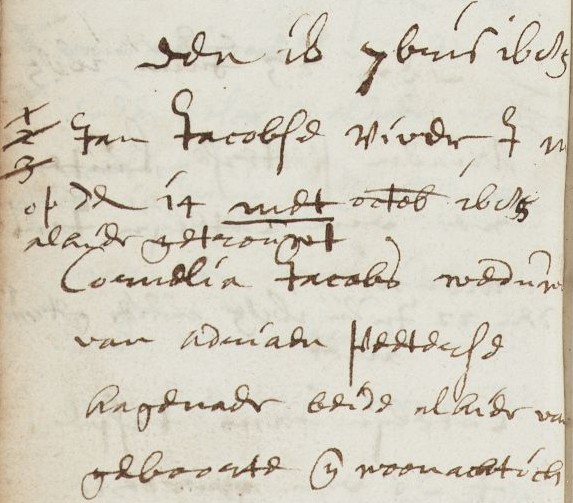 den 18 7bris 16
Jan Jacobse Vivder J
op de 14 met octob 16
alhier getrouwt
Cornelia Jacobs weduw
van Adriaen Peeterse
hagenaer beide alhier va
geboorte en woonachtich